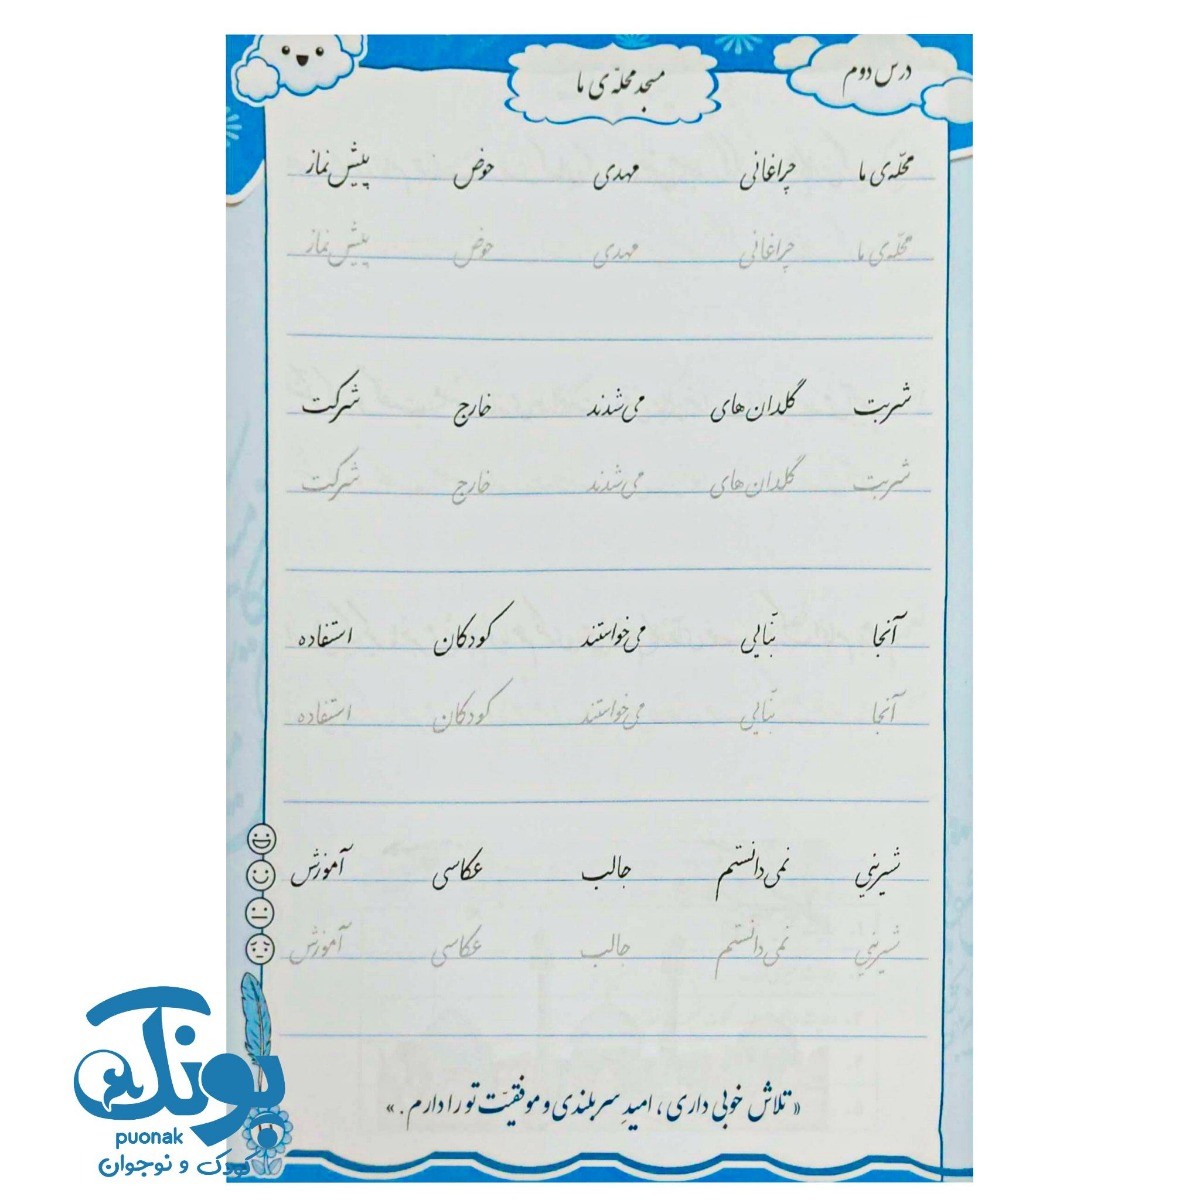 درس دوم
مسجد محلّه‌ی ما
محلّه‌ی ما چراغانی مهدی حوض پیش‌نماز
محلّه‌ی ما چراغانی مهدی حوض پیش‌نماز
شربت گلدان‌های می‌شدند خارج شرکت
شربت گلدان‌های می‌شدند خارج شرکت
آنجا بنّایی می‌خواستند کودکان استفاده
آنجا بنّایی می‌خواستند کودکان استفاده
شیرینی نمی‌دانستم جالب عکاسی آموزش
شیرینی نمی‌دانستم جالب عکاسی آموزش
« تلاش خوبی داری ، امیدِ سربلندی و موفقیّت تو را دارم . »
پونک
puonak
کودک و نوجوان